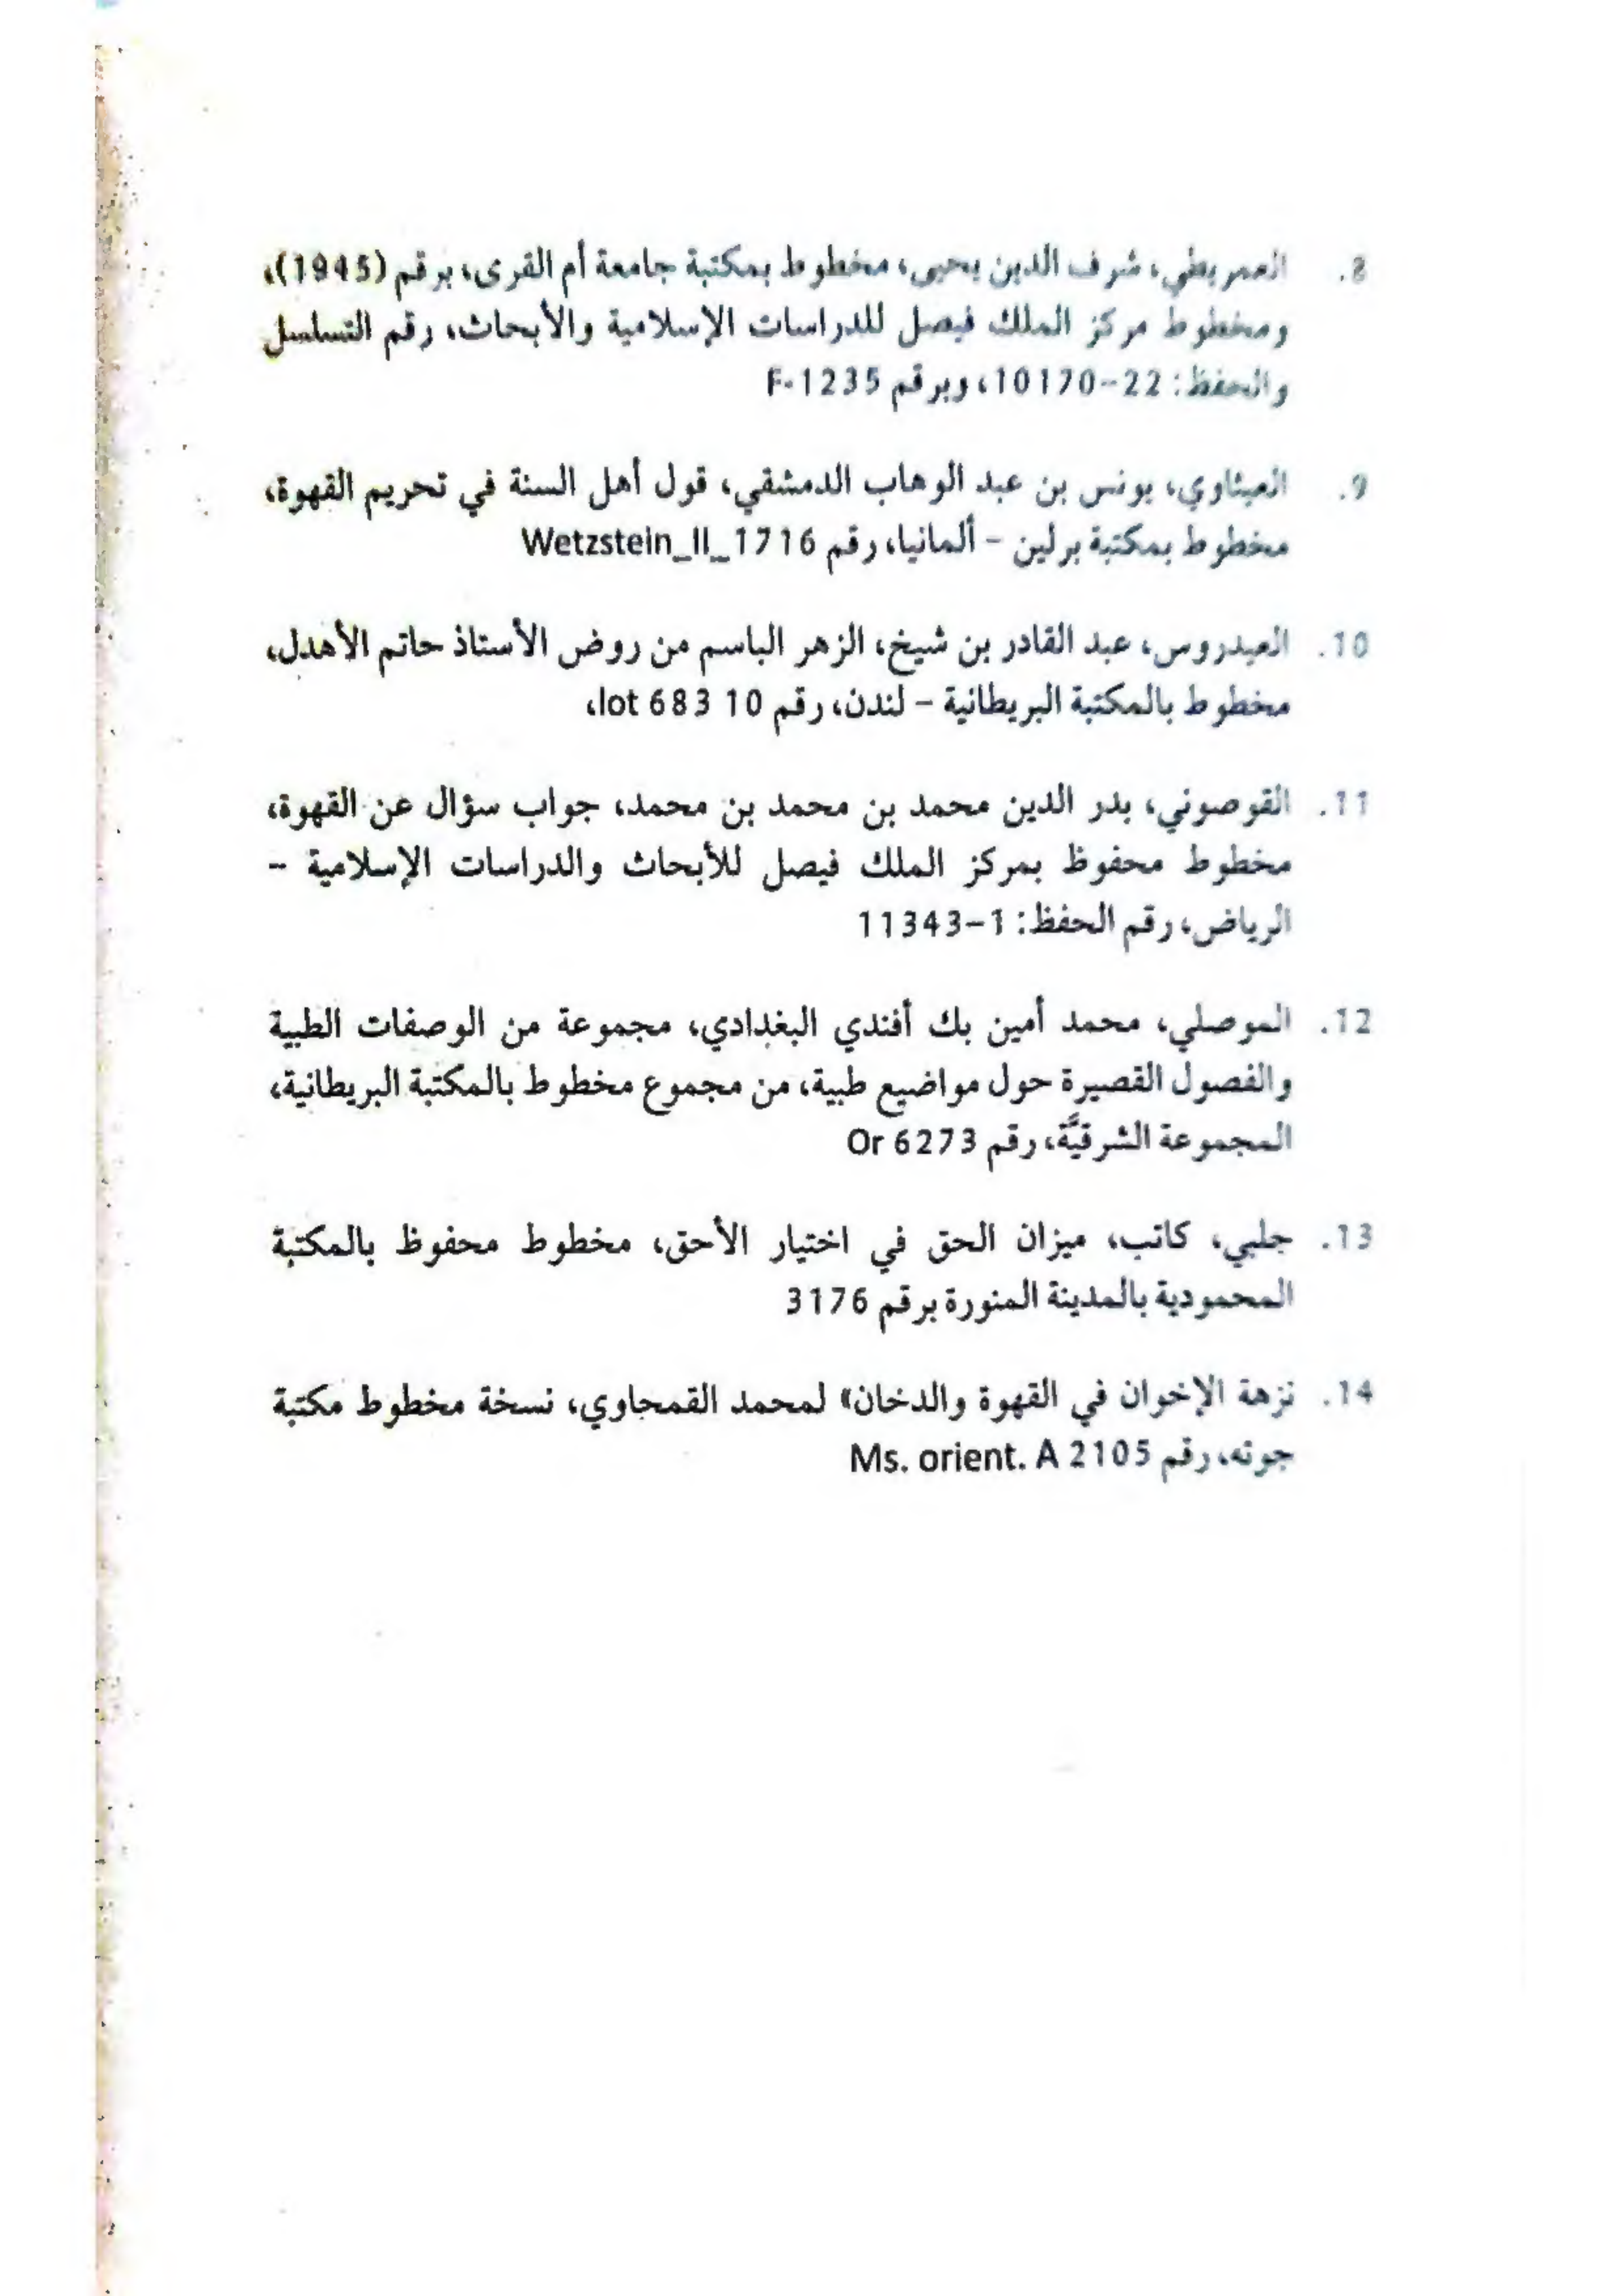 8. العمريطي، شرف الدين يحيى، مخطوط بمكتبة جامعة أم القرى، برقم (1945)،
ومخطوط مركز الملك فيصل للدراسات الإسلامية والأبحاث، رقم التسلسل
والحفظ: 22-10170، وبرقم F-1235
9. العيثاوي، يونس بن عبد الوهاب الدمشقي، قول أهل السنة في تحريم القهوة،
مخطوط بمكتبة برلين - ألمانيا، رقم Wetzstein_II_1716
10. العيدروس، عبد القادر بن شيخ، الزهر الباسم من روض الأستاذ حاتم الأهدل،
مخطوط بالمكتبة البريطانية - لندن، رقم 10 lot 683،
11. القوصوني، بدر الدين محمد بن محمد بن محمد، جواب سؤال عن القهوة،
مخطوط محفوظ بمركز الملك فيصل للأبحاث والدراسات الإسلامية -
الرياض، رقم الحفظ: 1-11343
12. الموصلي، محمد أمين بك أفندي البغدادي، مجموعة من الوصفات الطبية
والفصول القصيرة حول مواضيع طبية، من مجموع مخطوط بالمكتبة البريطانية،
المجموعة الشرقيَّة، رقم Or 6273
13. جلبي، كاتب، ميزان الحق في اختيار الأحق، مخطوط محفوظ بالمكتبة
المحمودية بالمدينة المنورة برقم 3176
14. نزهة الإخوان في القهوة والدخان» لمحمد القمحاوي، نسخة مخطوط مكتبة
جوته، رقم Ms. orient. A 2105